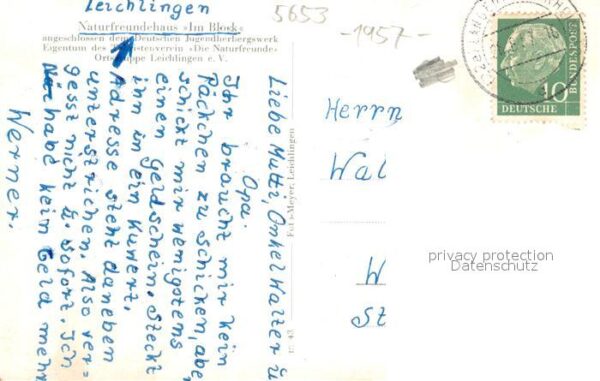 Leichlingen
5653
-1957-
Naturfreundehaus »Im Block«
angeschlossen dem Deutschen Jugendherbergswerk
Eigentum des Touristenverein »Die Naturfreunde»
Ortsgruppe Leichlingen e. V.
Liebe Mutti, Onkel Walter u.
Opa.
Ihr braucht mir kein
Päckchen zu schicken, aber
schickt mir wenigstens
einen Geldschein. Steckt
ihn in ein Kuwert.
Adresse steht daneben
unterstrichen. Also ver-
gesst nicht u. sofort. Ich
habe kein Geld mehr
Werner.
Foto-Meyer, Leichlingen
Herrn
Wal
W
St
10
DEUTSCHE
BUNDESPOST
privacy protection
Datenschutz